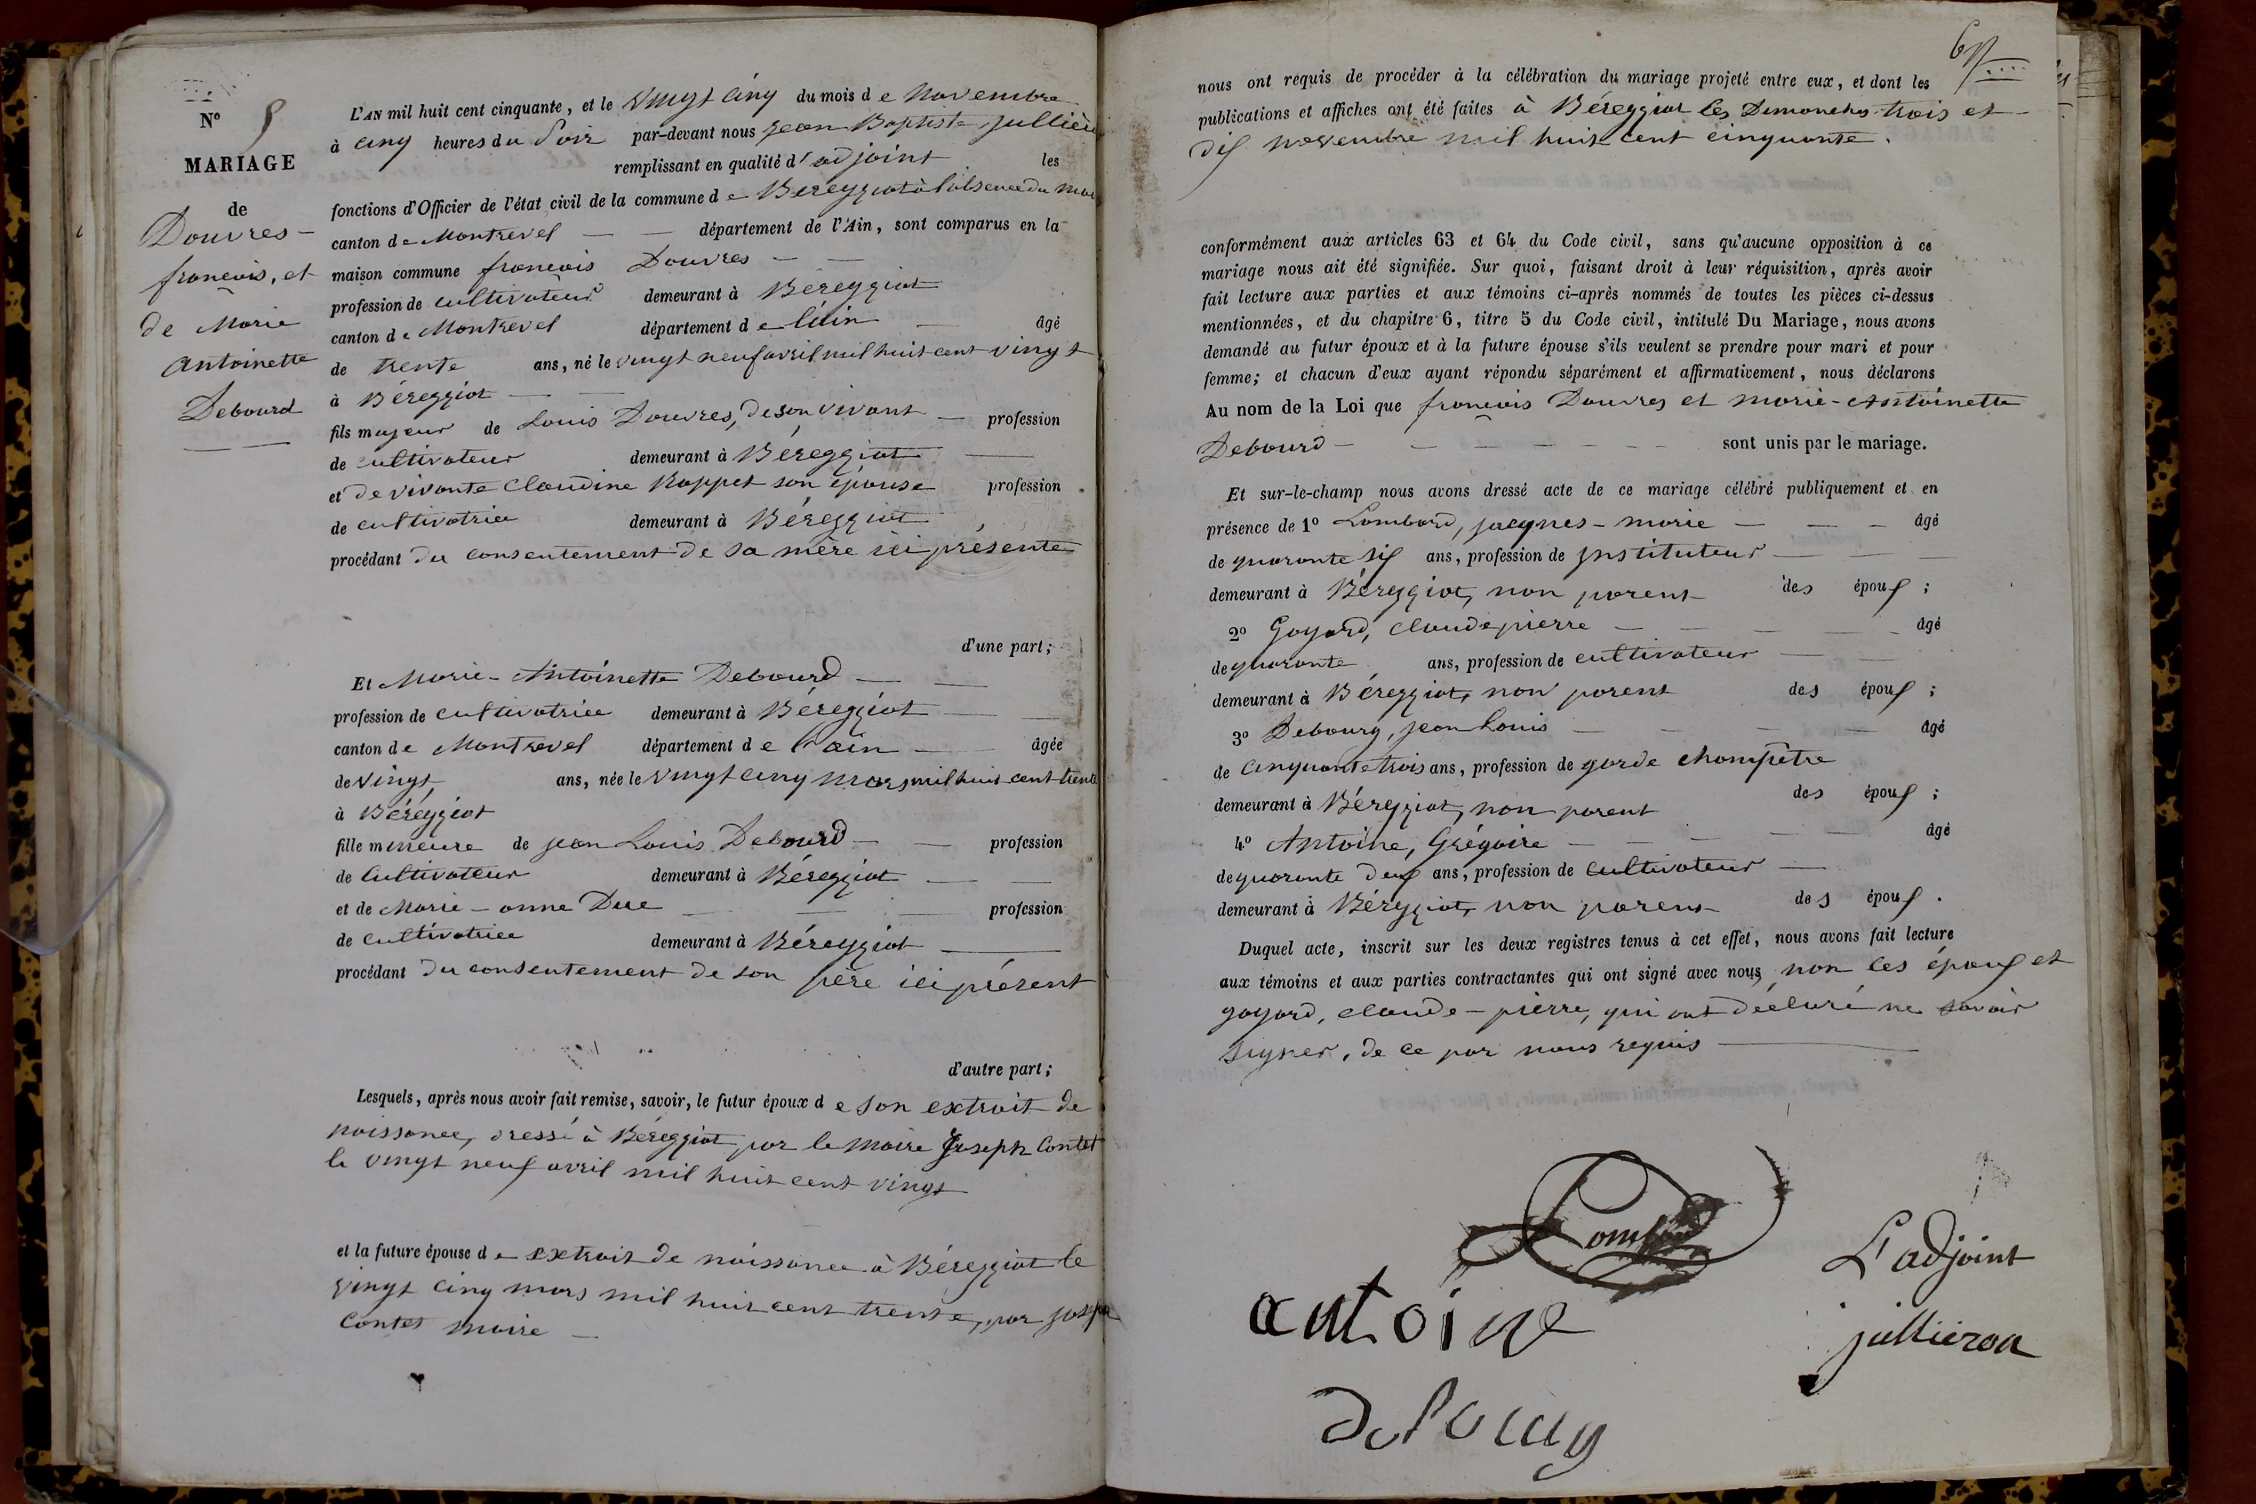 N° 5
MARIAGE
de
Douvres
françois, et
de Marie
Antoinette
Debourd
L'AN mil huit cent cinquante, et le vingt cinq du mois de Novembre
à cinq heures du Soir par-devant nous jean Baptiste jullière
remplissant en qualité d'adjoint les
fonctions d'Officier de l'état civil de la commune de Béreyziat à l'absence du Mai
canton de Montrevel département de l'Ain, sont comparus en la
maison commune françois Douvres
profession de cultivateur demeurant à Béreyziat
canton de Montrevel département de l'ain âgé
de trente ans, né le vingt neuf avril mil huit cent vingt
à Béreyziat
fils majeur de Louis Douvres, de son vivant profession
de cultivateur demeurant à Béreyziat
et de vivante Claudine Rappet son épouse profession
de cultivatrice demeurant à Béreyziat
procédant du consentement de sa mère ici présente
d'une part;
Et Marie-Antoinette Debourd
profession de cultivatrice demeurant à Béreyziat
canton de Montrevel département de l'ain âgée
de Vingt ans, née le vingt cinq mars mil huit cent trente
à Béreyziat
fille mineure de jean Louis Debourd profession
de Cultivateur demeurant à Béreyziat
et de Marie-anne Duc profession
de cultivatrice demeurant à Béreyziat
procédant du consentement de son père ici présent
d'autre part;
Lesquels, après nous avoir fait remise, savoir, le futur époux de son extrait de
naissance, dressé à Béreyziat par le Maire Joseph Contet
le vingt neuf avril mil huit cent vingt
et la future épouse de extrait de naissance à Béreyziat le
vingt cinq mars mil huit cent trente, par joseph
Contet Maire
nous ont requis de procéder à la célébration du mariage projeté entre eux, et dont les
publications et affiches ont été faites à Béreyziat les Dimanches trois et
dix novembre mil huit cent cinquante.
conformément aux articles 63 et 64 du Code civil, sans qu'aucune opposition à ce
mariage nous ait été signifiée. Sur quoi, faisant droit à leur réquisition, après avoir
fait lecture aux parties et aux témoins ci-après nommés de toutes les pièces ci-dessus
mentionnées, et du chapitre 6, titre 5 du Code civil, intitulé Du Mariage, nous avons
demandé au futur époux et à la future épouse s'ils veulent se prendre pour mari et pour
femme; et chacun d'eux ayant répondu séparément et affirmativement, nous déclarons
Au nom de la Loi que françois Douvres et marie-Antoinette
Debourd sont unis par le mariage.
Et sur-le-champ nous avons dressé acte de ce mariage célébré publiquement et en
présence de 1° Lombard, jacques-marie âgé
de quarante six ans, profession de instituteur
demeurant à Béreyziat, non parent des époux;
2° Goyard, claude pierre âgé
de quarante ans, profession de cultivateur
demeurant à Béreyziat, non parent des époux;
3° Debourg, jean Louis âgé
de cinquante trois ans, profession de garde champêtre
demeurant à Béreyziat, non parent des époux;
4° Antoine, Grégoire âgé
de quarante deux ans, profession de cultivateur
demeurant à Béreyziat, non parent des époux.
Duquel acte, inscrit sur les deux registres tenus à cet effet, nous avons fait lecture
aux témoins et aux parties contractantes qui ont signé avec nous, non les époux et
goyard, claude-pierre, qui ont déclaré ne savoir
signer, de ce par nous requis
Lombard
L'adjoint
antoine
jullieron
debourg